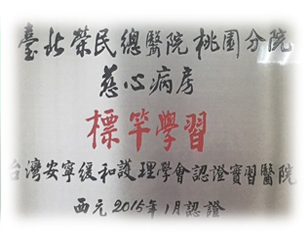 臺北榮民總醫院桃園分院
慈心病房
標竿學習
台灣安寧緩和護理學會認證實習醫院
西元2015年1月認證